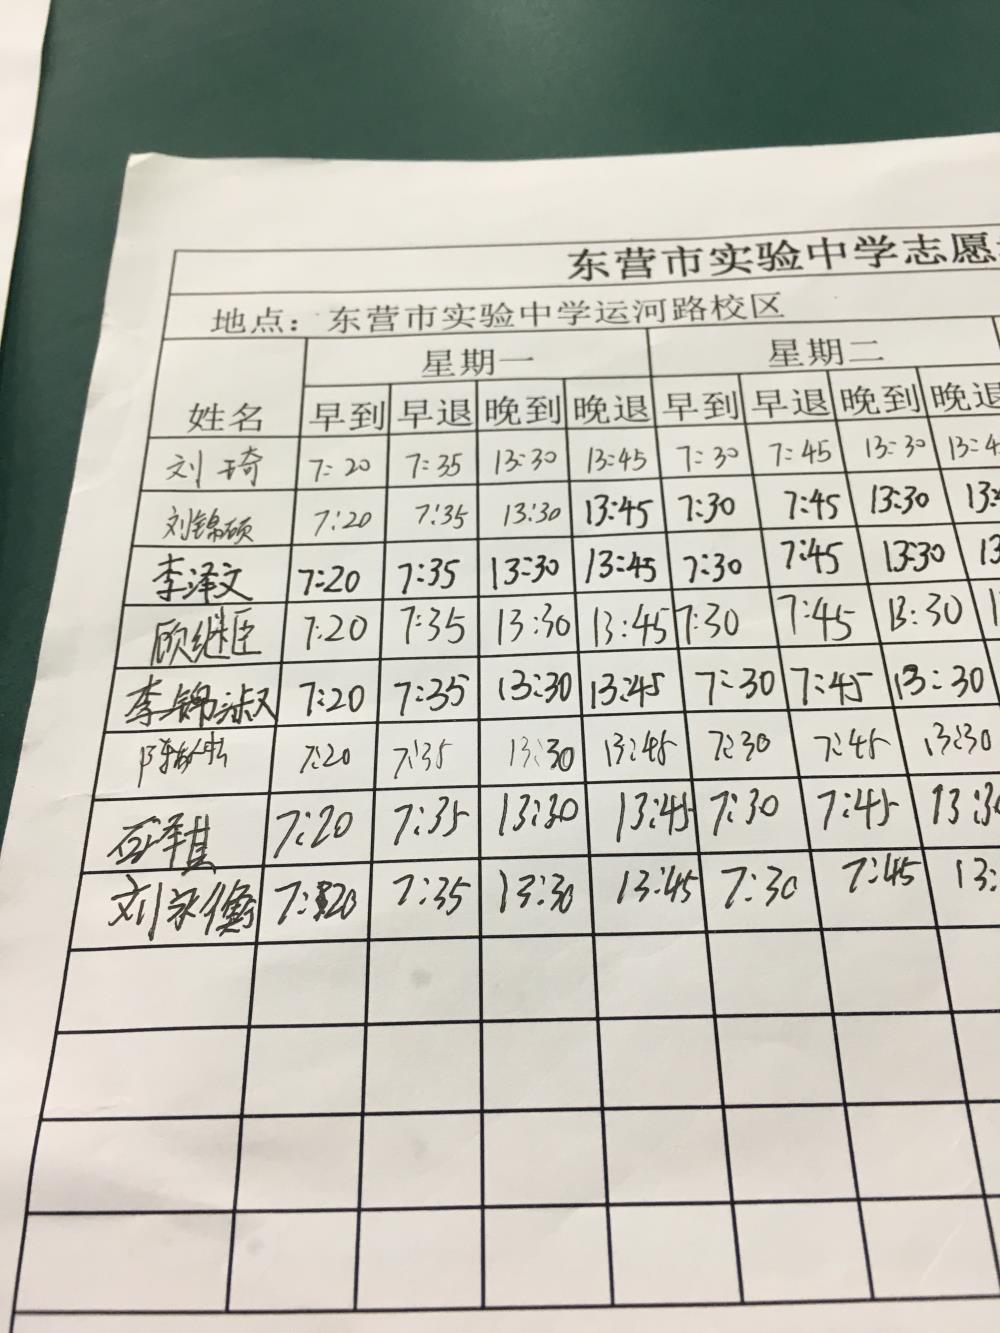 东营市实验中学志愿
地点：东营市实验中学运河路校区
姓名 星期一 星期二
早到 早退 晚到 晚退 早到 早退 晚到 晚退
刘琦 7:20 7:35 13:30 13:45 7:30 7:45 13:30 13:4
刘锦硕 7:20 7:35 13:30 13:45 7:30 7:45 13:30 13:
李泽文 7:20 7:35 13:30 13:45 7:30 7:45 13:30 13
顾继臣 7:20 7:35 13:30 13:45 7:30 7:45 13:30 1
李锦淑 7:20 7:35 13:30 13:45 7:30 7:45 13:30
7:20 7:35 13:30 13:45 7:30 7:45 13:30
7:20 7:35 13:30 13:45 7:30 7:45 13:30
刘永衡 7:20 7:35 13:30 13:45 7:30 7:45 13: